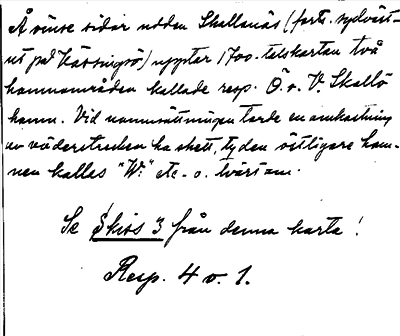 Å ömse sidor udden Skallanäs (forts. sydväst-
ut på Kässingsö) upptar 1700-talskartan två
hamnområden kallade resp. Ö. o. V. Skallö
hamn. Vid namnsättningen torde en omkastning
av väderstrecken ha skett, ty den östligare ham-
nen kallas "W:" etc. o. tvärtom.
Se Skiss 3 från denna karta!
Resp. 4 o. 1.